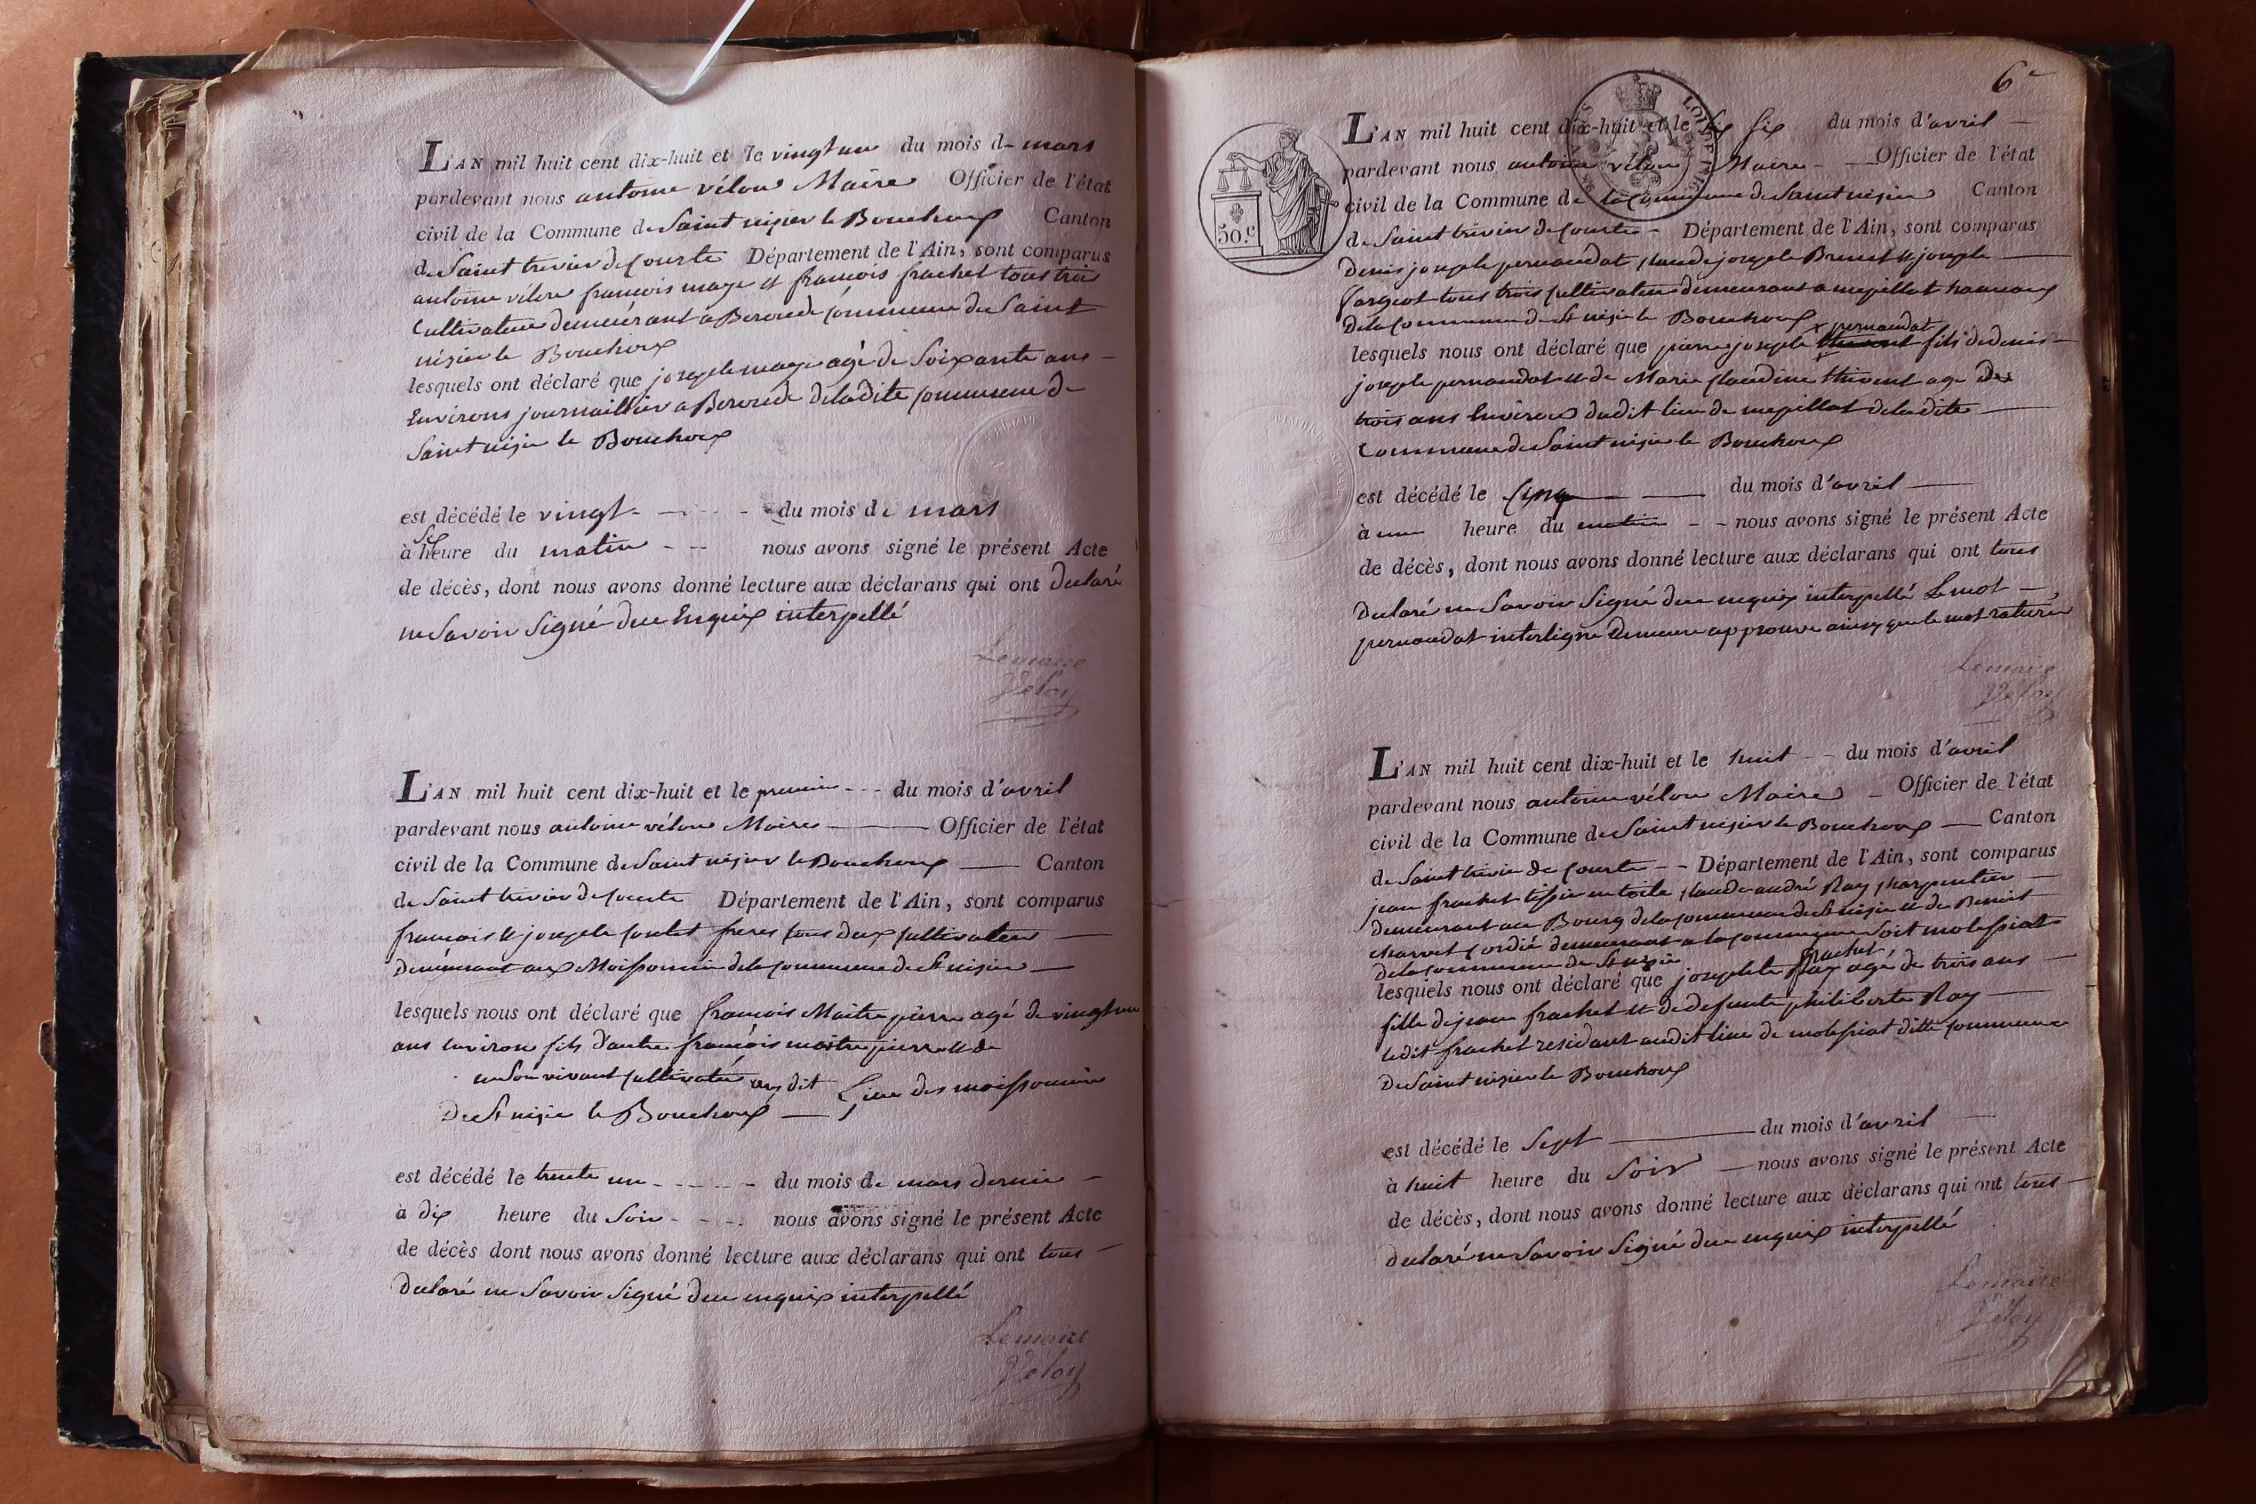 L'AN mil huit cent dix-huit et le vingt un du mois de mars
pardevant nous antoine vélon Maire Officier de l'état
civil de la Commune de Saint nizier le Bouchoux Canton
de Saint trivier de Courte Département de l'Ain, sont comparus
antoine vélon françois maye et françois frachet tous trois
Cultivateur demeurant a commune de Saint
nizier le Bouchoux
lesquels ont déclaré que joseph maye agé de Soixante ans
Environs journaillier a de la dite commune de
Saint nizier le Bouchoux
est décédé le vingt du mois de mars
à heure du matin nous avons signé le présent Acte
de décès, dont nous avons donné lecture aux déclarans qui ont declaré
ne Savoir Signé due Enquis interpellé
Lemaire
Velon
L'AN mil huit cent dix-huit et le premier du mois d'avril
pardevant nous antoine vélon Maire Officier de l'état
civil de la Commune de Saint nizier le Bouchoux Canton
de Saint trivier de Courte Département de l'Ain, sont comparus
françois et joseph freres tous deux cultivateurs
Demeurant aux Moissonnier de la commune de St nizier
lesquels nous ont déclaré que françois Maitrepierre agé de vingt un
ans environ fils d'autre françois maitrepierre et de
en Son vivant cultivateur au dit Lieu des moissonnier
De St nizier le Bouchoux
est décédé le trente un du mois de mars dernier
à dix heure du Soir nous avons signé le présent Acte
de décès dont nous avons donné lecture aux déclarans qui ont tous
Declaré ne Savoir Signé due enquis interpellé
Lemaire
Velon
6e
L'AN mil huit cent dix-huit et le six du mois d'avril
pardevant nous antoine vélon Maire Officier de l'état
civil de la Commune de la Commune de Saint nizier Canton
de Saint trivier de Courte Département de l'Ain, sont comparus
50.c
Denis joseph pernaudat Claude joseph Brunet et joseph
fargeot tous trois cultivateur demeurant a mepillat hameaux
De la Commune de St nizier le Bouchoux
pernaudat
lesquels nous ont déclaré que pierre joseph thivent fils de denis
joseph pernaudat et de Marie Claudine thivent age de
trois ans Environ dudit lieu de mepillat de la dite
Commune de Saint nizier le Bouchoux
est décédé le Cinq du mois d'avril
à une heure du matin nous avons signé le présent Acte
de décès, dont nous avons donné lecture aux déclarans qui ont tous
Declaré ne Savoir Signé due enquis interpellé Le mot
pernaudat interligne Demeure approuvé ainsy que le mot raturée
Lemaire
Velon
L'AN mil huit cent dix-huit et le huit du mois d'avril
pardevant nous antoine vélon Maire Officier de l'état
civil de la Commune de Saint nizier le Bouchoux Canton
de Saint trivier de Courte Département de l'Ain, sont comparus
jean frachet tissier en toile Claude andré Ray charpentier
demeurant au Bourg de la commune de St nizier et de Benoit
charvet demeurant a la commune Soit molessiat
de la commune de St nizier frachet
lesquels nous ont déclaré que joseph te Ray agé de trois ans
fille de jean frachet et de defunte philiberte Ray
ledit frachet residant audit lieu de molessiat ditte commune
De Saint nizier le Bouchoux
est décédé le Sept du mois d'avril
à huit heure du Soir nous avons signé le présent Acte
de décès, dont nous avons donné lecture aux déclarans qui ont tous
declaré ne Savoir Signé due enquis interpellé
Lemaire
Velon